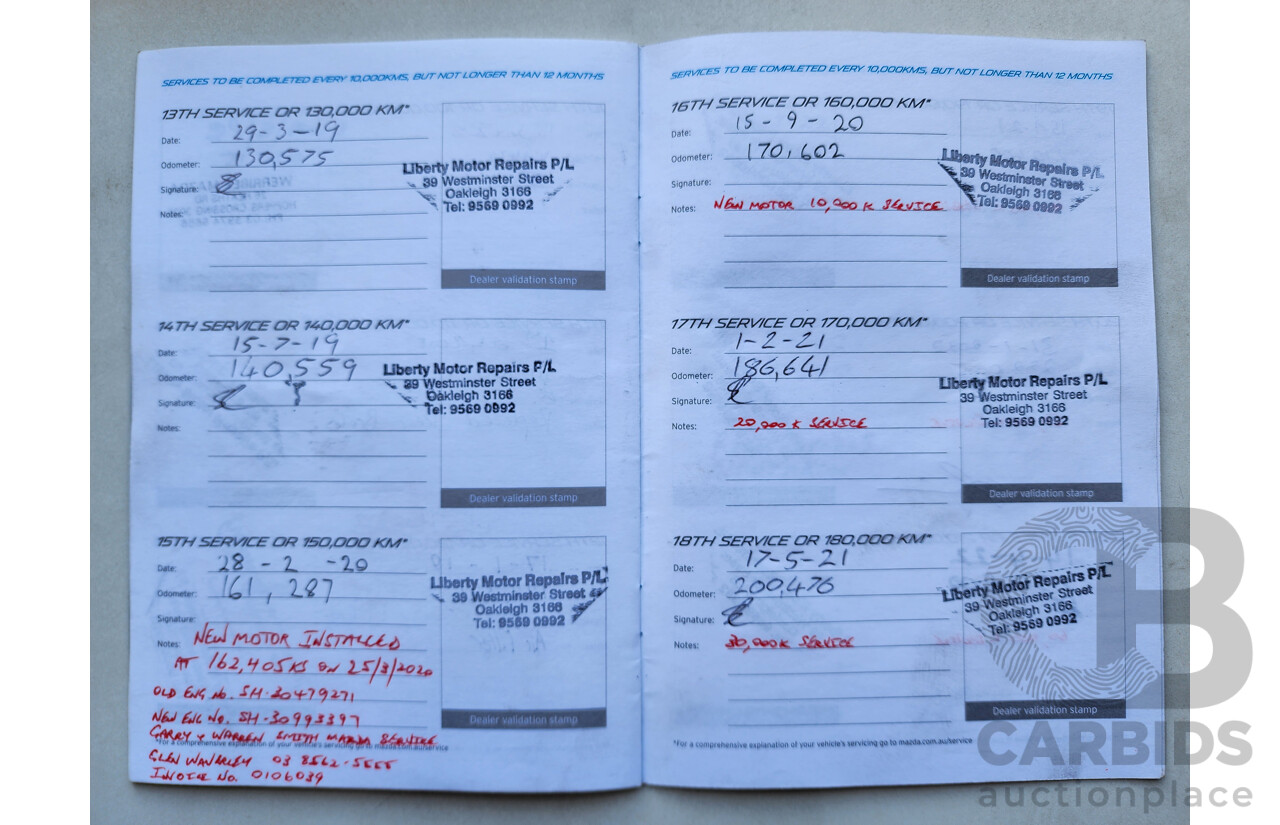 SERVICES TO BE COMPLETED EVERY 10,000KMS, BUT NOT LONGER THAN 12 MONTHS
13TH SERVICE OR 130,000 KM*
Date: 29-3-19
Odometer: 130,575
Signature:
Notes:
Liberty Motor Repairs P/L
39 Westminster Street
Oakleigh 3166
Tel: 9569 0992
Dealer validation stamp
14TH SERVICE OR 140,000 KM*
Date: 15-7-19
Odometer: 140,559
Signature:
Notes:
Liberty Motor Repairs P/L
39 Westminster Street
Oakleigh 3166
Tel: 9569 0992
Dealer validation stamp
15TH SERVICE OR 150,000 KM*
Date: 28-2-20
Odometer: 161,287
Signature:
Notes: NEW MOTOR INSTALLED
AT 162,405KS ON 25/3/2020
OLD ENG No. SH-30479271
NEW ENG No. SH-30993397
GARRY & WARREN SMITH MAZDA SERVICE
*For a comprehensive explanation of your vehicle's servicing go to mazda.com.au/service
GLEN WAVERLEY 03 8562-5555
INVOICE No. 0106039
Liberty Motor Repairs P/L
39 Westminster Street
Oakleigh 3166
Tel: 9569 0992
Dealer validation stamp
SERVICES TO BE COMPLETED EVERY 10,000KMS, BUT NOT LONGER THAN 12 MONTHS
16TH SERVICE OR 160,000 KM*
Date: 15-9-20
Odometer: 170,602
Signature:
Notes: NEW MOTOR 10,000K SERVICE
Liberty Motor Repairs P/L
39 Westminster Street
Oakleigh 3166
Tel: 9569 0992
Dealer validation stamp
17TH SERVICE OR 170,000 KM*
Date: 1-2-21
Odometer: 186,641
Signature:
Notes: 20,000K SERVICE
Liberty Motor Repairs P/L
39 Westminster Street
Oakleigh 3166
Tel: 9569 0992
Dealer validation stamp
18TH SERVICE OR 180,000 KM*
Date: 17-5-21
Odometer: 200,476
Signature:
Notes: 30,000K SERVICE
Liberty Motor Repairs P/L
39 Westminster Street
Oakleigh 3166
Tel: 9569 0992
Dealer validation stamp
*For a comprehensive explanation of your vehicle's servicing go to mazda.com.au/service
CARBIDS
auctionplace